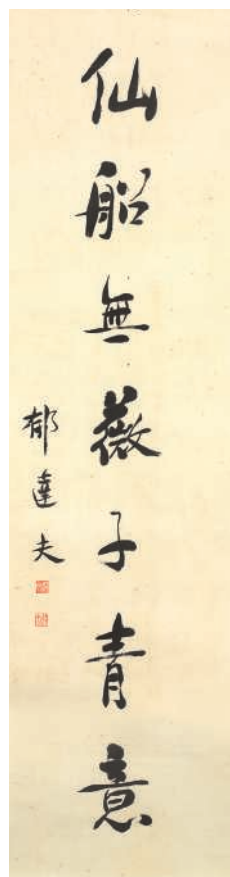 仙船無薇子青意
郁達夫